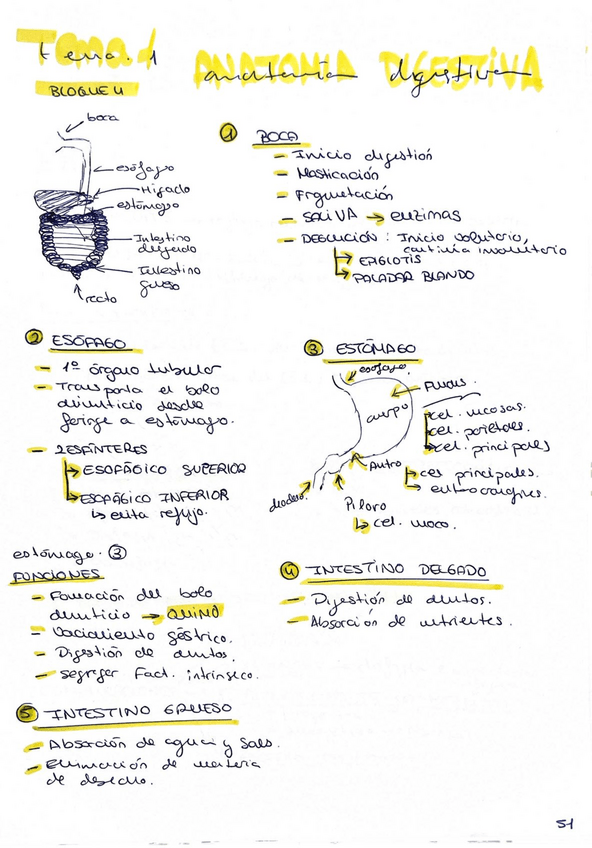 Tema. 1 ANATOMIA DIGESTIVA
tema. 1 anatomía digestiva
BLOQUE 4
boca
esófago
Hígado
estómago
Intestino
delgado
Intestino
grueso
recto
① BOCA
- Inicio digestión
- Masticación
- Fragmentación
- SALIVA → enzimas
- DEGLUCIÓN: Inicio voluntario,
continúa involuntario
EPIGLOTIS
PALADAR BLANDO
② ESÓFAGO
- 1º órgano tubular
- Transporta el bolo
alimenticio desde
faringe a estómago.
- 2 ESFÍNTERES
ESOFÁGICO SUPERIOR
ESOFÁGICO INFERIOR
↳ evita reflujo.
③ ESTÓMAGO
esófago.
Fundus.
cuerpo
cel. mucosas.
cel. parietales.
cel. principales
Antro
cel principales.
duodeno.
Píloro
↳ cel. moco.
estómago. ③
FUNCIONES
- Formación del bolo
alimenticio → QUIMO
- Vaciamiento gástrico.
- Digestión de alimtos.
- segregar Fact. intrínseco.
④ INTESTINO DELGADO
- Digestión de alimtos.
- Absorción de nutrientes.
⑤ INTESTINO GRUESO
- Absorción de agua y sales.
- Eliminación de materia
de desecho.
51